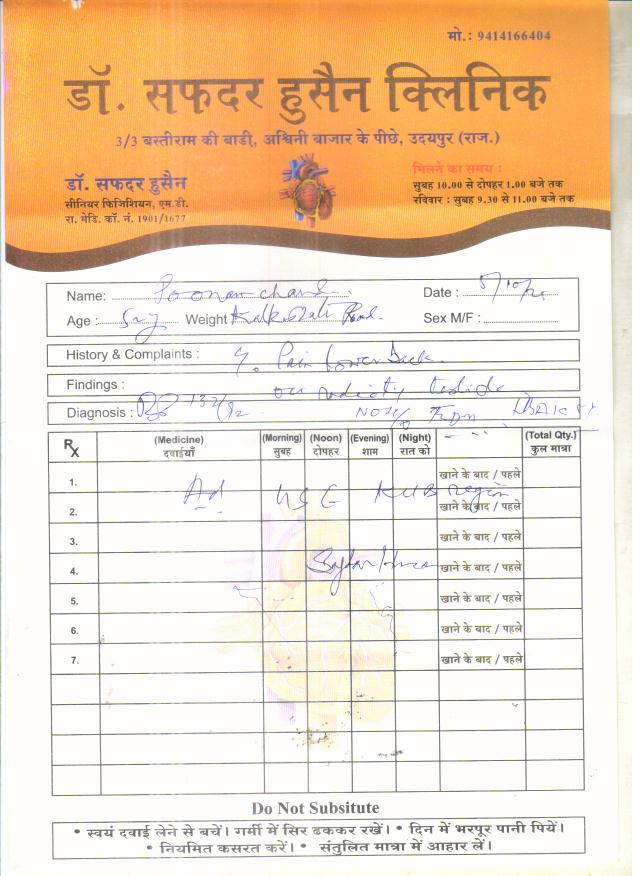 मो.: 9414166404
डॉ. सफदर हुसैन क्लिनिक
3/3 बस्तीराम की बाडी, अश्विनी बाजार के पीछे, उदयपुर (राज.)
डॉ. सफदर हुसैन
सीनियर फिजिशियन, एम.डी.
रा. मेडि. कॉ. नं. 1901/1677
मिलने का समय :
सुबह 10.00 से दोपहर 1.00 बजे तक
रविवार : सुबह 9.30 से 11.00 बजे तक
Name: Poonam chand Date :
Age : Weight Sex M/F :
History & Complaints : Pain Lower Back
Findings :
Diagnosis :
Rx (Medicine) (Morning) (Noon) (Evening) (Night) (Total Qty.)
दवाईयाँ सुबह दोपहर शाम रात को कुल मात्रा
1. खाने के बाद / पहले
Ad USG KUB region
2. खाने के बाद / पहले
3. खाने के बाद / पहले
4. खाने के बाद / पहले
5. खाने के बाद / पहले
6. खाने के बाद / पहले
7. खाने के बाद / पहले
Do Not Subsitute
• स्वयं दवाई लेने से बचें। गर्मी में सिर ढककर रखें। • दिन में भरपूर पानी पियें।
• नियमित कसरत करें। • संतुलित मात्रा में आहार लें।